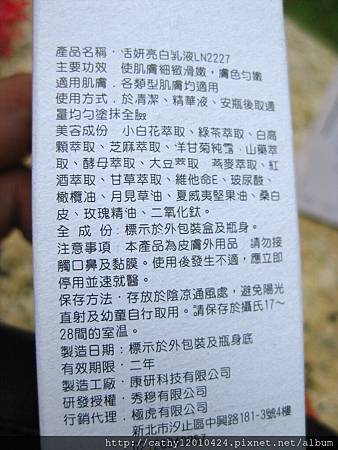 產品名稱：活妍亮白乳液LN2227
主要功效　使肌膚細緻滑嫩，膚色勻嫩
適用肌膚：各類型肌膚均適用
使用方式：於清潔、精華液、安瓶後取適
量均勻塗抹全臉
美容成份　小白花萃取、綠茶萃取、白高
顆萃取、芝麻萃取、洋甘菊純露、山藥萃
取、酵母萃取、大豆萃取　燕麥萃取、紅
酒萃取、甘草萃取、維他命E、玻尿酸、
橄欖油、月見草油、夏威夷堅果油、桑白
皮、玫瑰精油、二氧化鈦。
全 成 份：標示於外包裝盒及瓶身。
注意事項　本產品為皮膚外用品　請勿接
觸口鼻及黏膜。使用後發生不適，應立即
停用並速就醫。
保存方法：存放於陰涼通風處，避免陽光
直射及幼童自行取用。請保存於攝氏17～
28間的室溫。
製造日期：標示於外包裝及瓶身底
有效期限：二年
製造工廠：康研科技有限公司
研發授權：秀穆有限公司
行銷代理：極虎有限公司
新北市汐止區中興路181-3號4樓
http://cathy12010424.pixnet.net/album